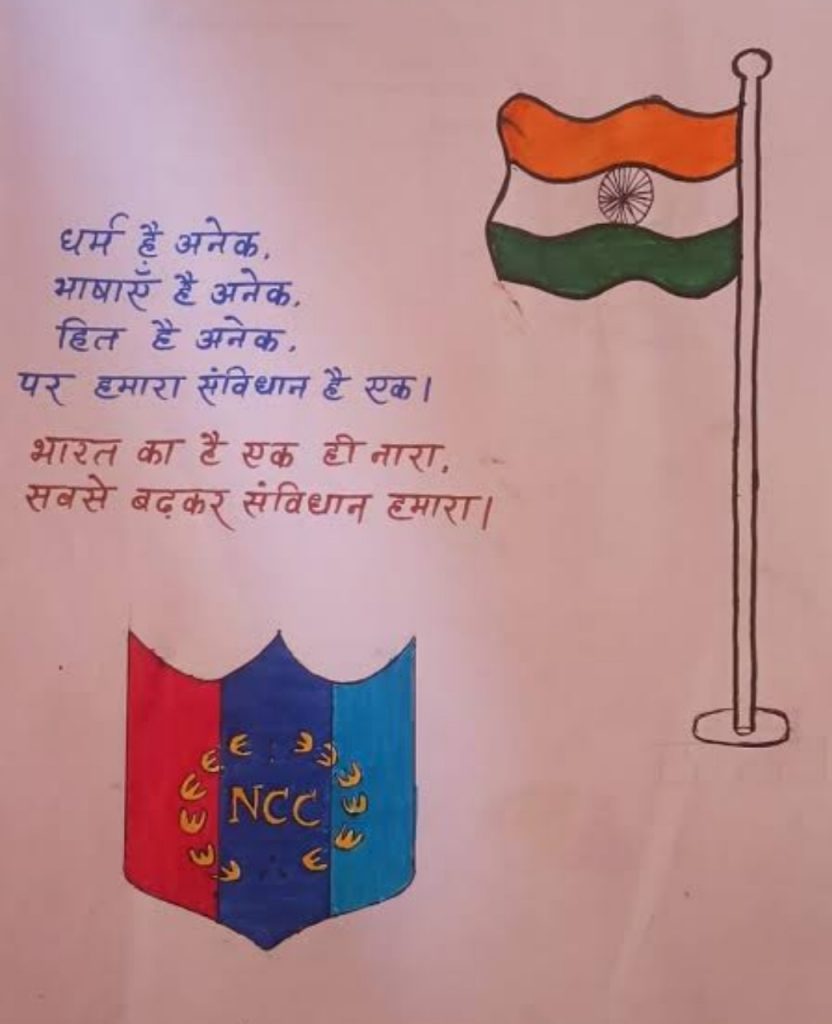 धर्म है अनेक,
भाषाएँ है अनेक,
हित है अनेक,
पर हमारा संविधान है एक।
भारत का है एक ही नारा,
सबसे बढ़कर संविधान हमारा।
NCC